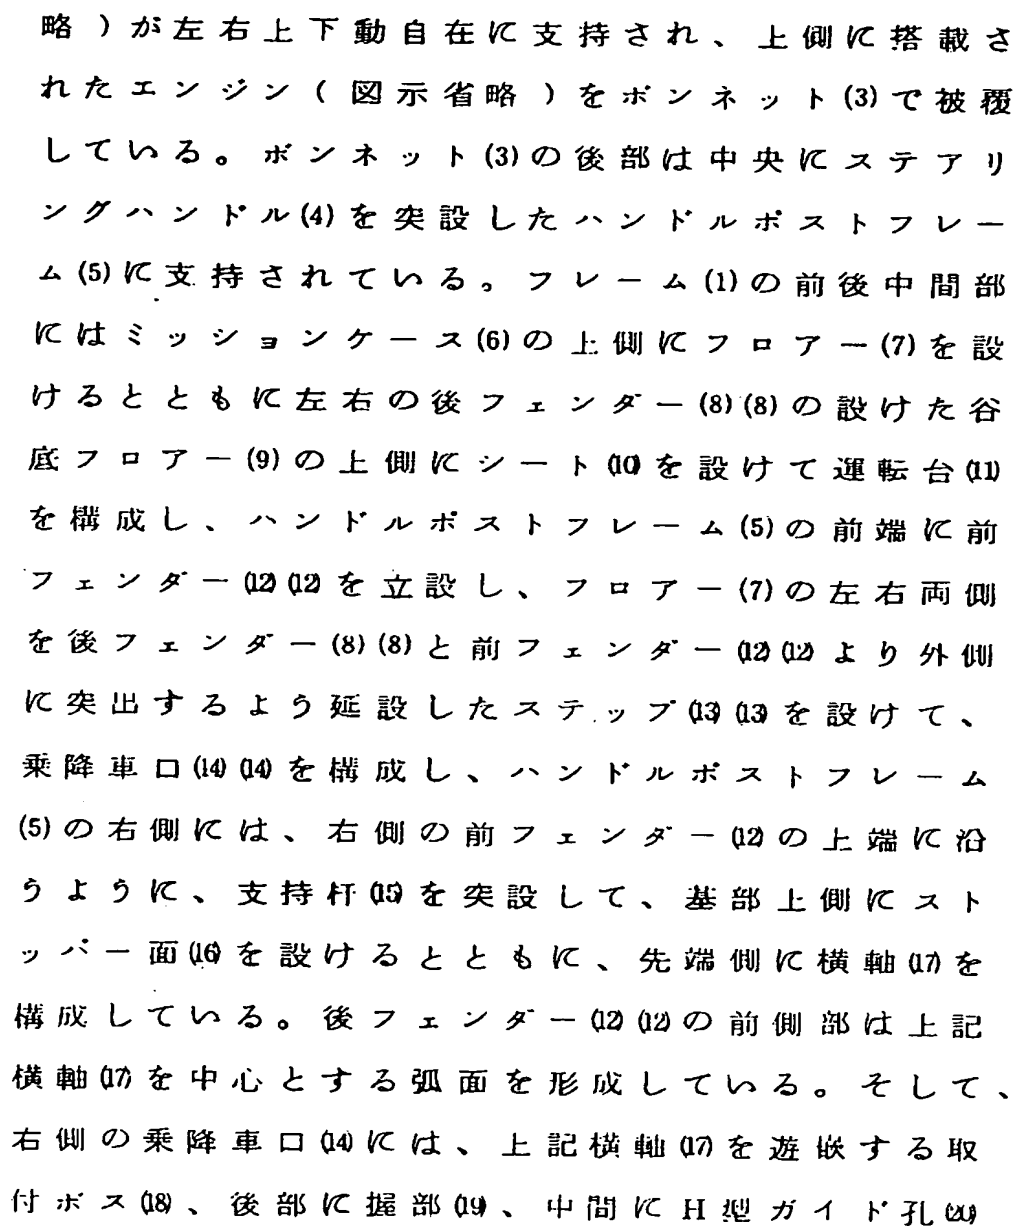 略)が左右上下動自在に支持され、上側に搭載さ
れたエンジン(図示省略)をボンネット(3)で被覆
している。ボンネット(3)の後部は中央にステアリ
ングハンドル(4)を突設したハンドルポストフレー
ム(5)に支持されている。フレーム(1)の前後中間部
にはミッションケース(6)の上側にフロアー(7)を設
けるとともに左右の後フェンダー(8)(8)の設けた谷
底フロアー(9)の上側にシート(10)を設けて運転台(11)
を構成し、ハンドルポストフレーム(5)の前端に前
フェンダー(12)(12)を立設し、フロアー(7)の左右両側
を後フェンダー(8)(8)と前フェンダー(12)(12)より外側
に突出するよう延設したステップ(13)(13)を設けて、
乗降車口(14)(14)を構成し、ハンドルポストフレーム
(5)の右側には、右側の前フェンダー(12)の上端に沿
うように、支持杆(15)を突設して、基部上側にスト
ッパー面(16)を設けるとともに、先端側に横軸(17)を
構成している。後フェンダー(12)(12)の前側部は上記
横軸(17)を中心とする弧面を形成している。そして、
右側の乗降車口(14)には、上記横軸(17)を遊嵌する取
付ボス(18)、後部に握部(19)、中間にH型ガイド孔(20)